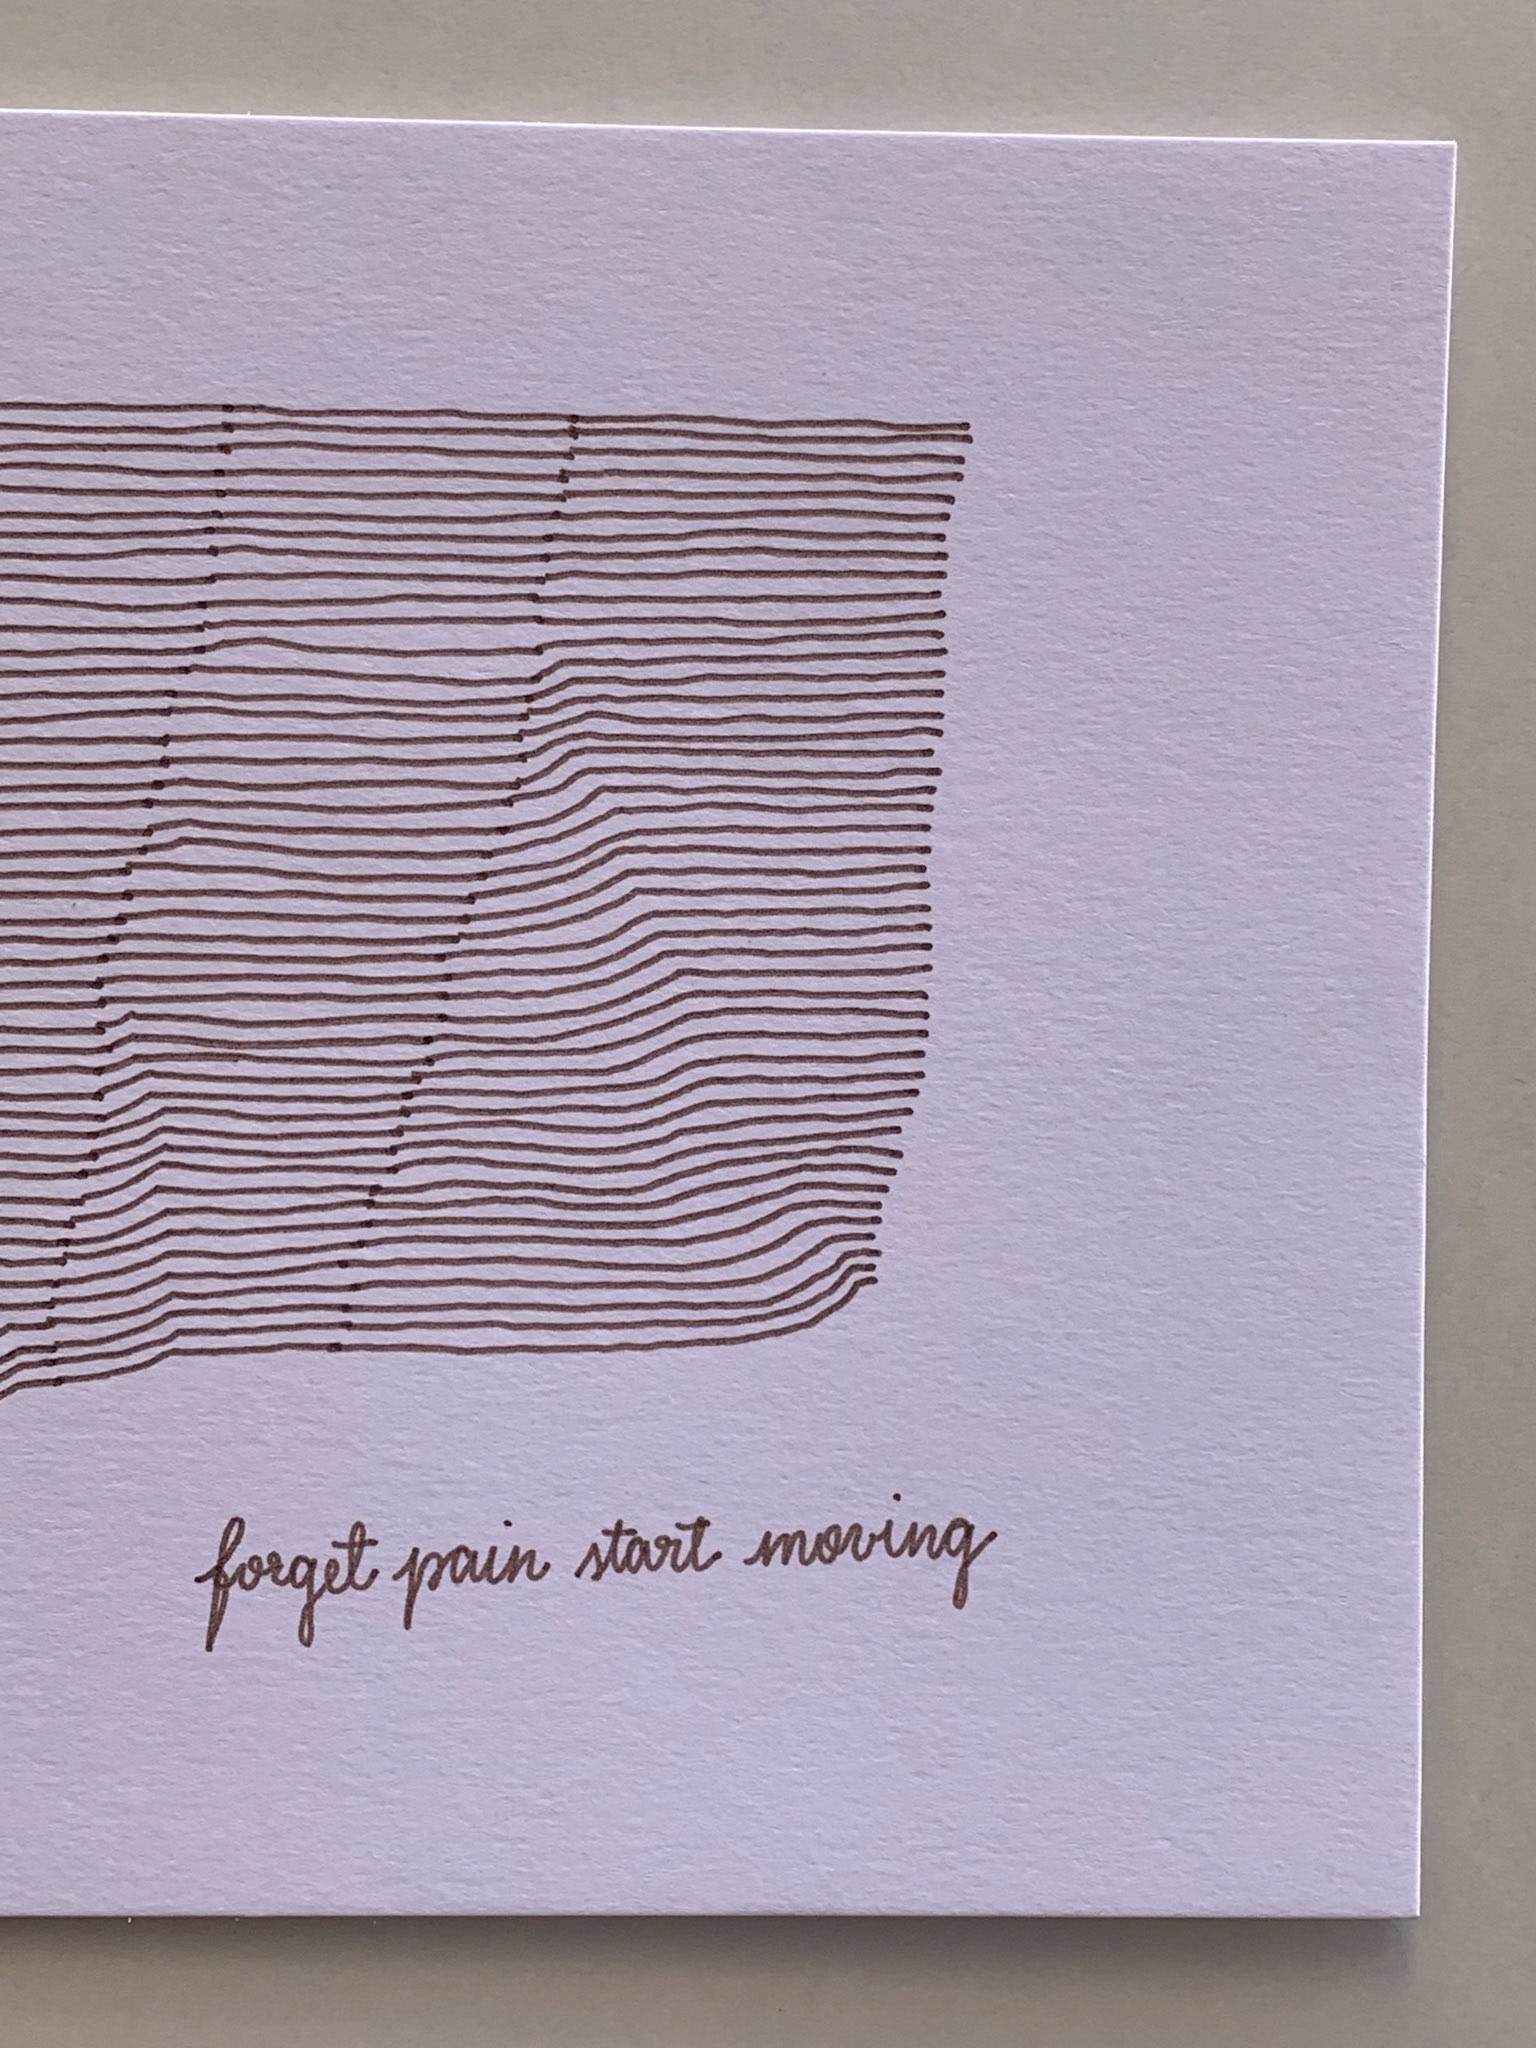 forget pain start moving